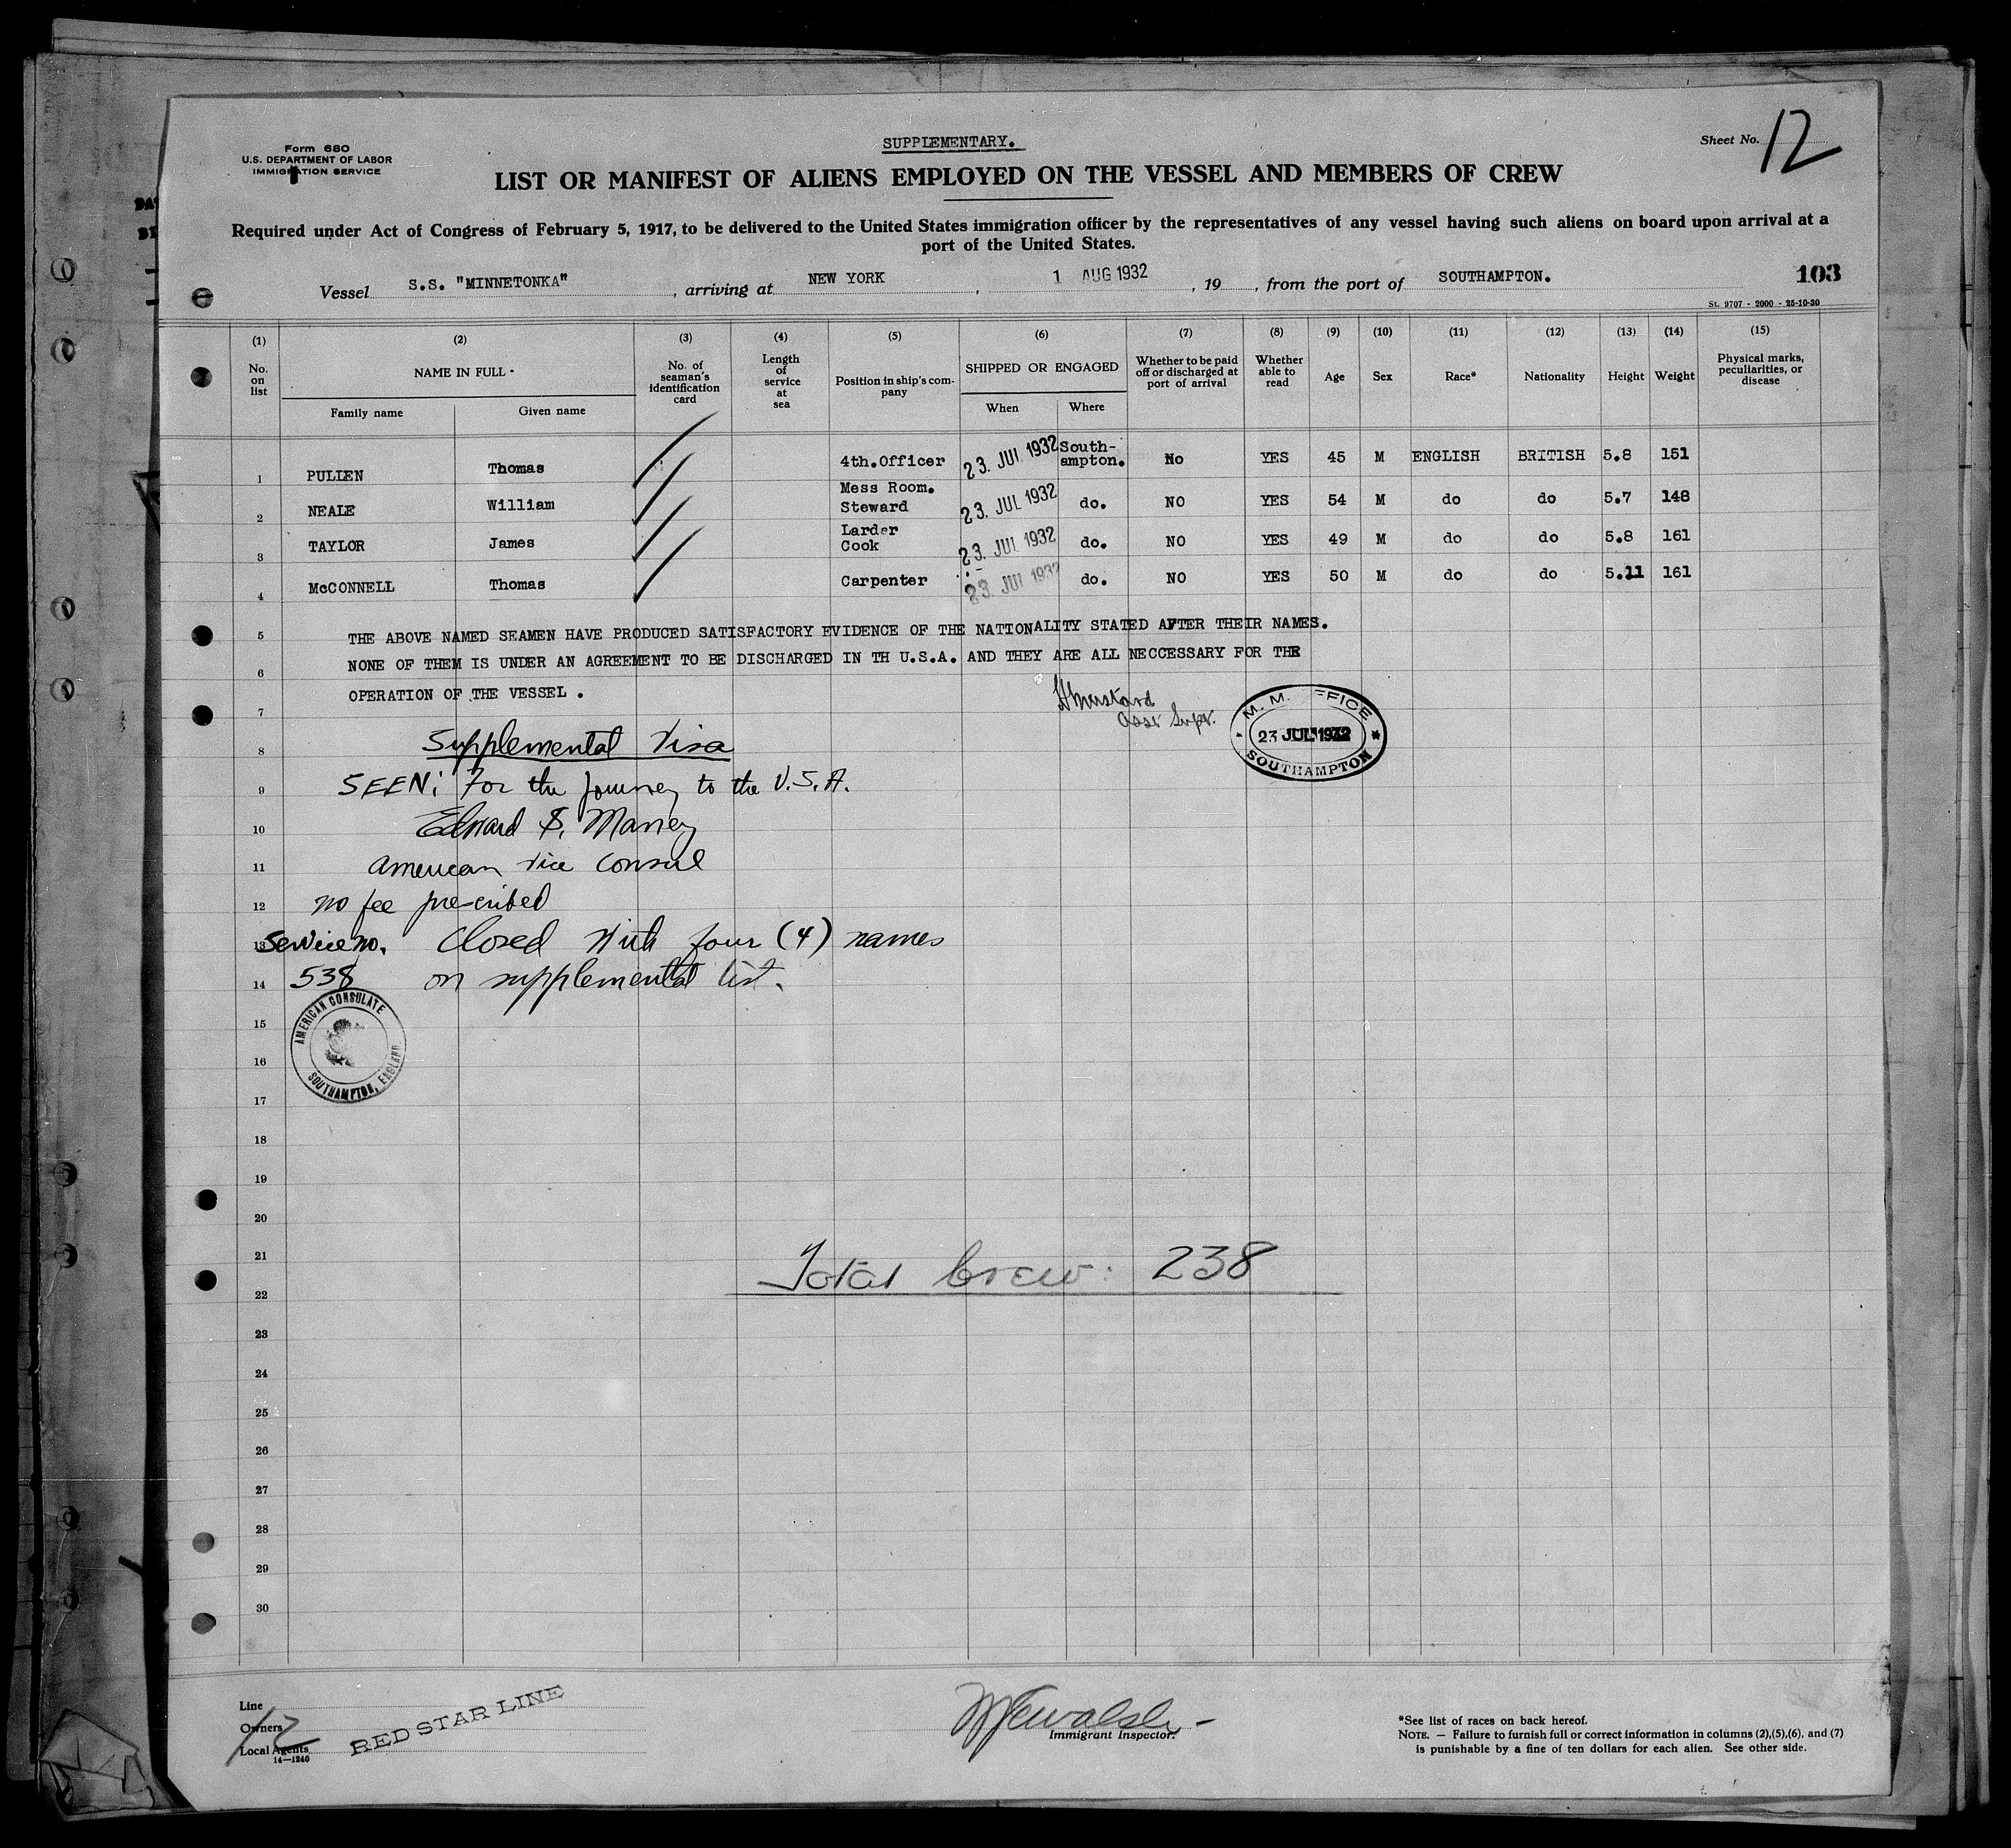 Form 680
U.S. DEPARTMENT OF LABOR
IMMIGRATION SERVICE
SUPPLEMENTARY.
Sheet No. 12
LIST OR MANIFEST OF ALIENS EMPLOYED ON THE VESSEL AND MEMBERS OF CREW
Required under Act of Congress of February 5, 1917, to be delivered to the United States immigration officer by the representatives of any vessel having such aliens on board upon arrival at a
port of the United States.
Vessel S.S. "MINNETONKA", arriving at NEW YORK, 1 AUG 1932, 19, from the port of SOUTHAMPTON. 103
St. 9707 - 2000 - 25-10-30
(1) (2) (3) (4) (5) (6) (7) (8) (9) (10) (11) (12) (13) (14) (15)
No. on list NAME IN FULL Family name Given name No. of seaman's identification card Length of service at sea Position in ship's company SHIPPED OR ENGAGED When Where Whether to be paid off or discharged at port of arrival Whether able to read Age Sex Race* Nationality Height Weight Physical marks, peculiarities, or disease
1 PULLEN Thomas 4th.Officer 23. JUL 1932 South-ampton. No YES 45 M ENGLISH BRITISH 5.8 151
2 NEALE William Mess Room. Steward 23. JUL 1932 do. NO YES 54 M do do 5.7 148
3 TAYLOR James Larder Cook 23. JUL 1932 do. NO YES 49 M do do 5.8 161
4 McCONNELL Thomas Carpenter 23. JUL 1932 do. NO YES 50 M do do 5.11 161
5 THE ABOVE NAMED SEAMEN HAVE PRODUCED SATISFACTORY EVIDENCE OF THE NATIONALITY STATED AFTER THEIR NAMES.
6 NONE OF THEM IS UNDER AN AGREEMENT TO BE DISCHARGED IN TH U.S.A. AND THEY ARE ALL NECCESSARY FOR THE
7 OPERATION OF THE VESSEL.
Asst Supr.
M. M. OFFICE
23 JUL 1932
SOUTHAMPTON
8 Supplemental Visa
9 SEEN: For the journey to the U.S.A.
10 Edward S. Maney
11 American Vice Consul
12 no fee prescribed
13 Service no. Closed with four (4) names
14 538 on supplemental list.
AMERICAN CONSULATE
SOUTHAMPTON, ENGLAND
15
16
17
18
19
20
21 Total Crew: 238
22
23
24
25
26
27
28
29
30
Line
Owners
Local Agents
RED STAR LINE
12
14—1240
Immigrant Inspector.
*See list of races on back hereof.
NOTE. — Failure to furnish full or correct information in columns (2),(5),(6), and (7)
is punishable by a fine of ten dollars for each alien. See other side.